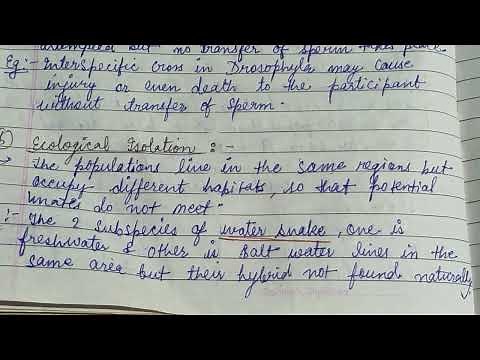 attempted but no transfer of sperm takes place
Eg:- Interspecific Cross in Drosophyla may cause
injury or even death to the participant
without transfer of sperm.
5) Ecological Isolation :-
→ The populations live in the same regions but
occupy different habitats, so that potential
mates do not meet.
:- The 2 subspecies of water snake, one is
freshwater & other is salt water lives in the
same area but their hybrid not found naturally